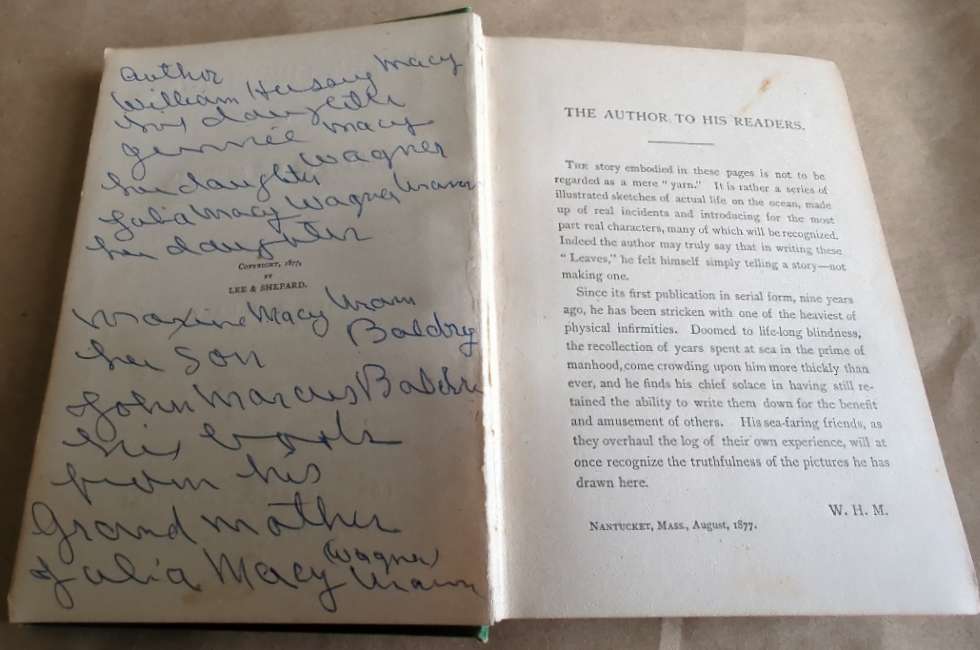 author
William Hussey Macy
his daughter
Jennie Macy
Wagner
her daughter
Julia Macy Wagner
her daughter
COPYRIGHT, 1877,
BY
LEE & SHEPARD.
Maxine Macy
Baldry
her son
John Marcus
his book
from his
Grand mother
Julia Macy (Wagner)
THE AUTHOR TO HIS READERS.
THE story embodied in these pages is not to be
regarded as a mere "yarn." It is rather a series of
illustrated sketches of actual life on the ocean, made
up of real incidents and introducing for the most
part real characters, many of which will be recognized.
Indeed the author may truly say that in writing these
"Leaves," he felt himself simply telling a story—not
making one.
Since its first publication in serial form, nine years
ago, he has been stricken with one of the heaviest of
physical infirmities. Doomed to life-long blindness,
the recollection of years spent at sea in the prime of
manhood, come crowding upon him more thickly than
ever, and he finds his chief solace in having still re-
tained the ability to write them down for the benefit
and amusement of others. His sea-faring friends, as
they overhaul the log of their own experience, will at
once recognize the truthfulness of the pictures he has
drawn here.
W. H. M.
NANTUCKET, MASS., August, 1877.